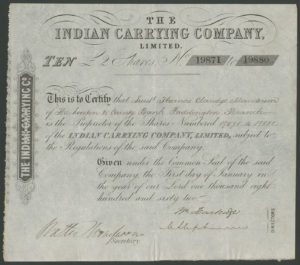 THE
INDIAN CARRYING COMPANY,
LIMITED.
TEN £2 Shares No 19871 to 19880
This is to Certify that
of the London & County Bank Paddington Branch
is the Proprietor of the Shares Numbered 19871 to 19880
of the INDIAN CARRYING COMPANY, LIMITED, subject to
the Regulations of the said Company.
Given under the Common Seal of the said
Company, the First day of January in
the year of our Lord One thousand eight
hundred and sixty two
Secretary
DIRECTORS
THE INDIAN CARRYING Co.